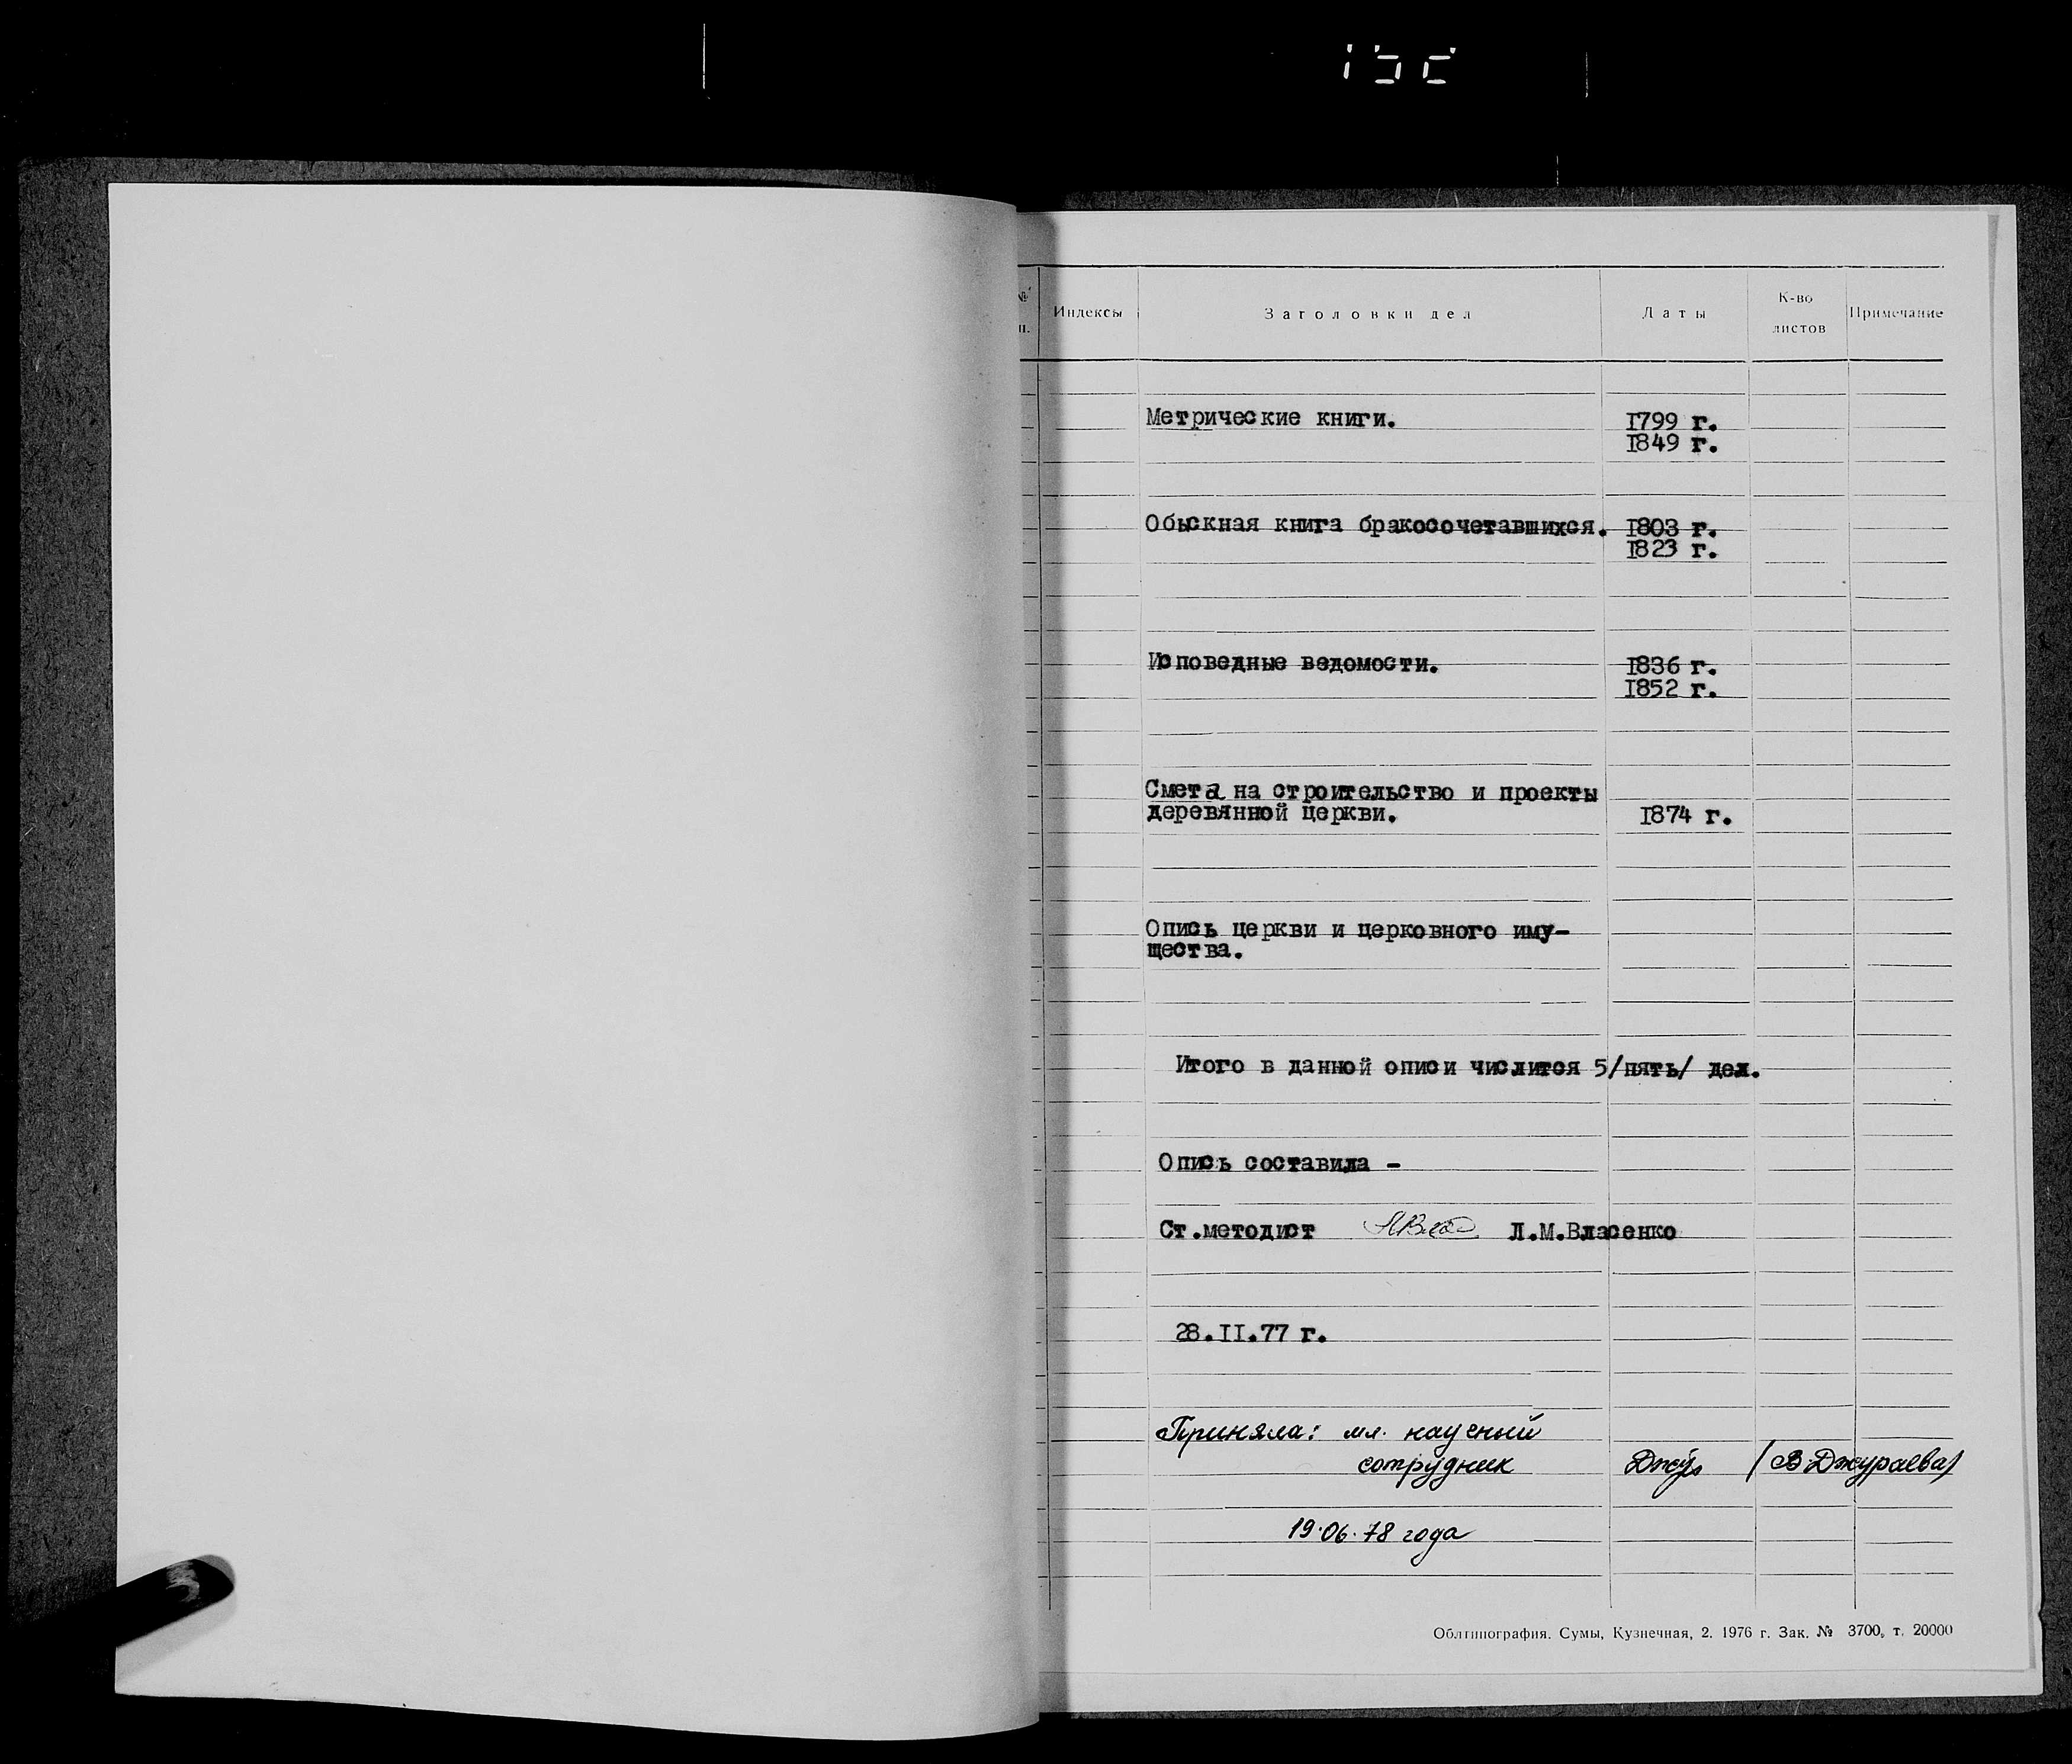 №
п.
Индексы
Заголовки дел
Даты
К-во
листов
Примечание
Метрические книги. 1799 г.
1849 г.
Обыскная книга бракосочетавшихся. 1803 г.
1823 г.
Исповедные ведомости. 1836 г.
1852 г.
Смета на строительство и проекты
деревянной церкви. 1874 г.
Опись церкви и церковного иму-
щества.
Итого в данной описи числится 5/пять/ дел.
Опись составила -
Ст.методист Л.М.Власенко
28.II.77 г.
Приняла: мл. научный
сотрудник Джу (В.Джураева)
19.06.78 года
Облтипография. Сумы, Кузнечная, 2. 1976 г. Зак. № 3700, т. 20000